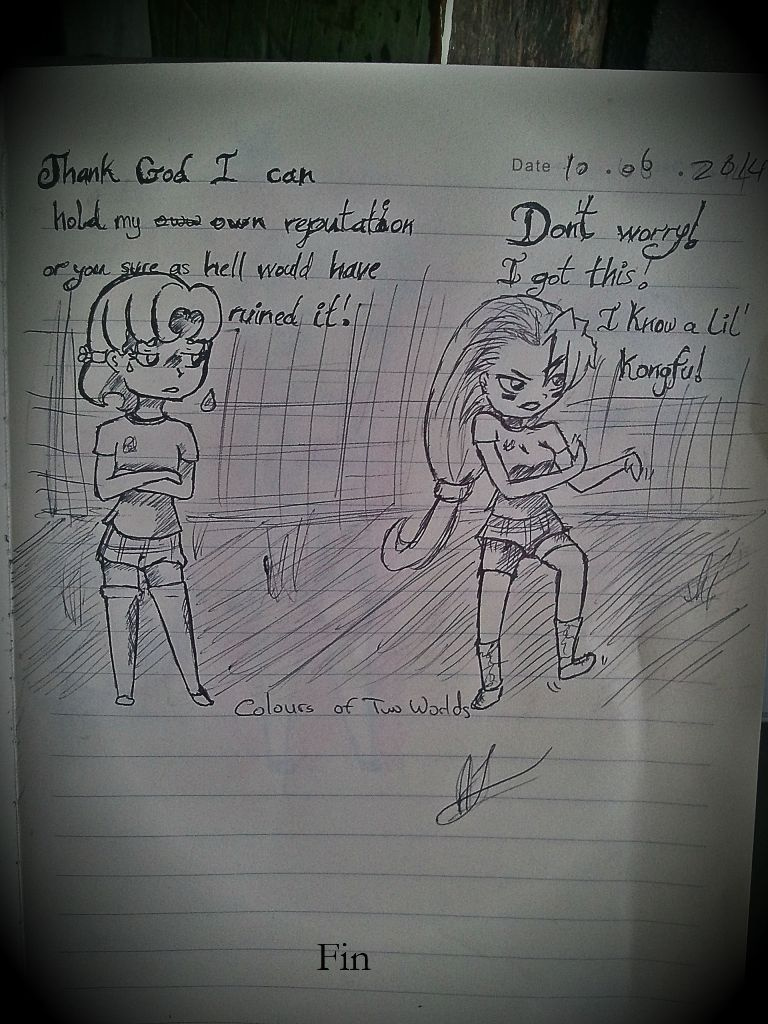 Date 10.06.2014
Thank God I can
hold my own own reputation
or you sure as hell would have
ruined it!
Don't worry!
I got this!
I Know a Lil'
Kongfu!
Colours of Two Worlds
Fin